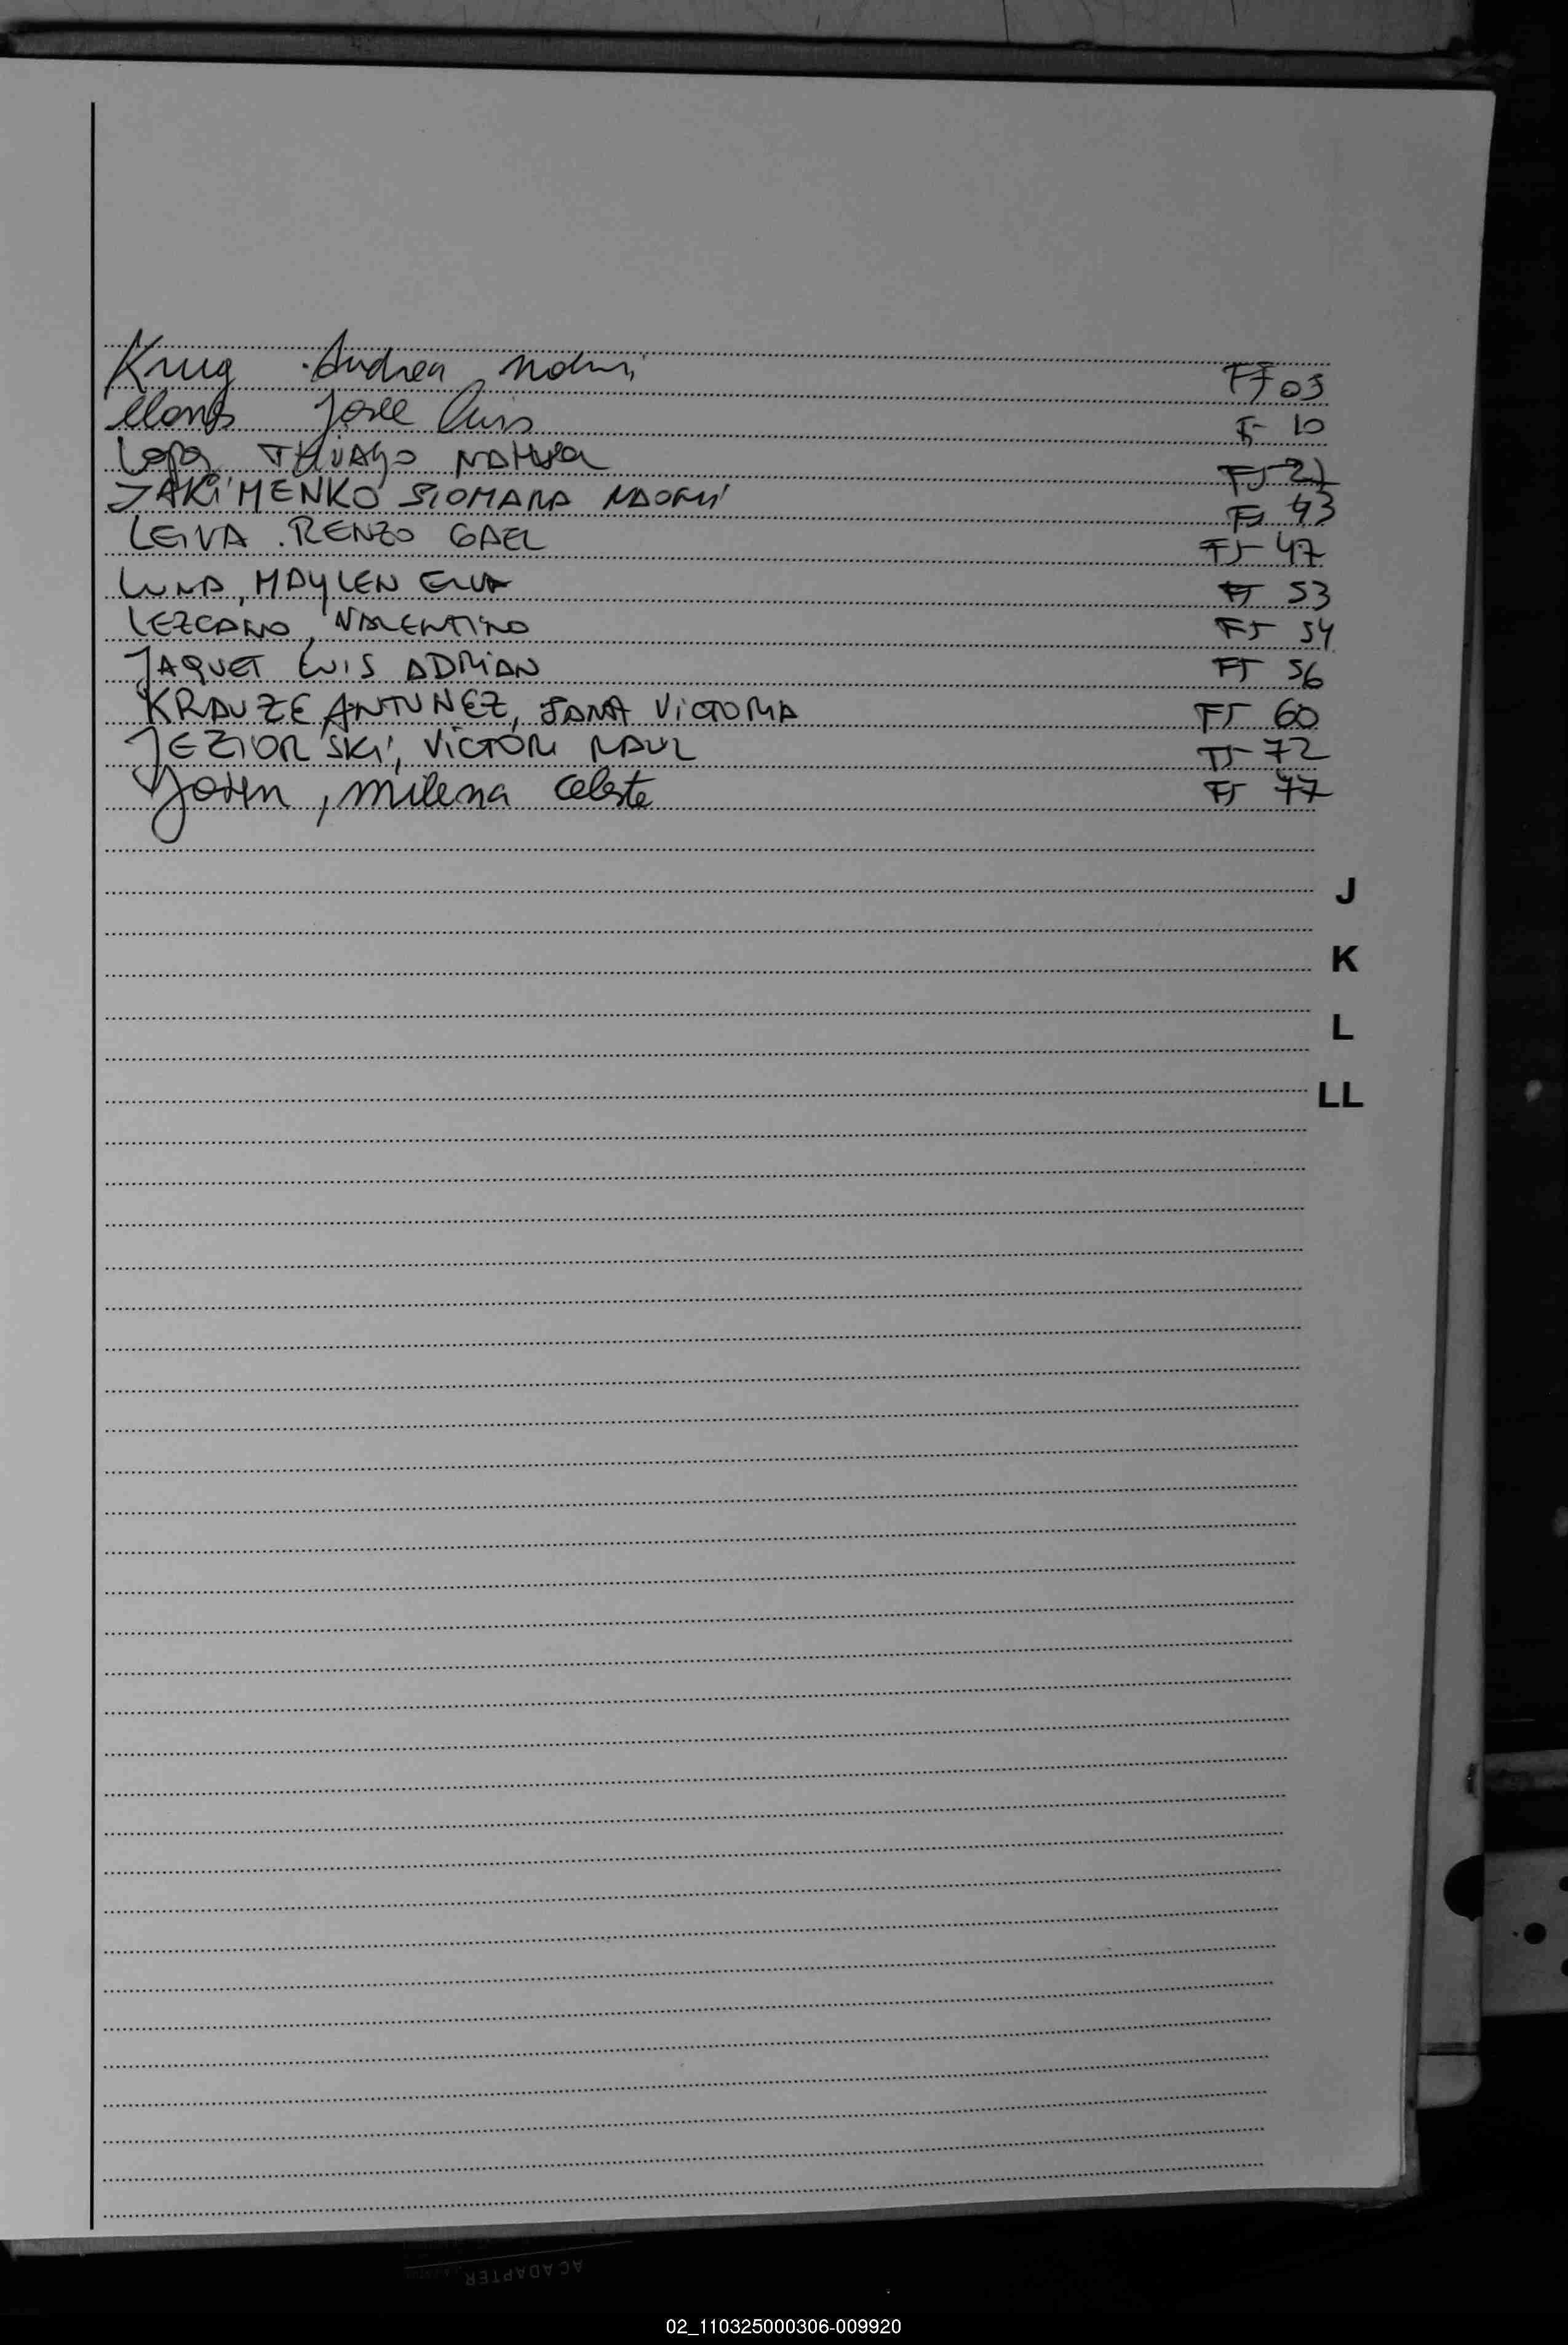 Krug Andrea Noemi FJ 03
Jose Luis FJ 10
THIAGO FJ 21
JAKIMENKO SIOMARA NAOMI FJ 43
LEIVA RENZO GAEL FJ 47
LUNA, MAYLEN FJ 53
LEZCANO, VALENTINO FJ 54
JAQUET LUIS ADRIAN FJ 56
KRAUZE ANTUNEZ, JANA VICTORIA FJ 60
JEZIORSKI, VICTOR RAUL FJ 72
, Milena Celeste FJ 77
J
K
L
LL
AC ADAPTER
02_110325000306-009920